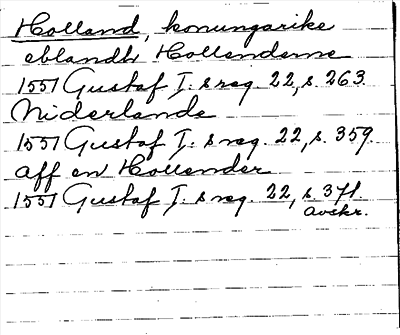 Holland, konungarike
eblandh Hollenderne
1551 Gustaf I:s reg. 22, s. 263.
Niderlande
1551 Gustaf I:s reg. 22, s. 359.
aff en Hollender
1551 Gustaf I:s reg. 22, s. 371
avskr.